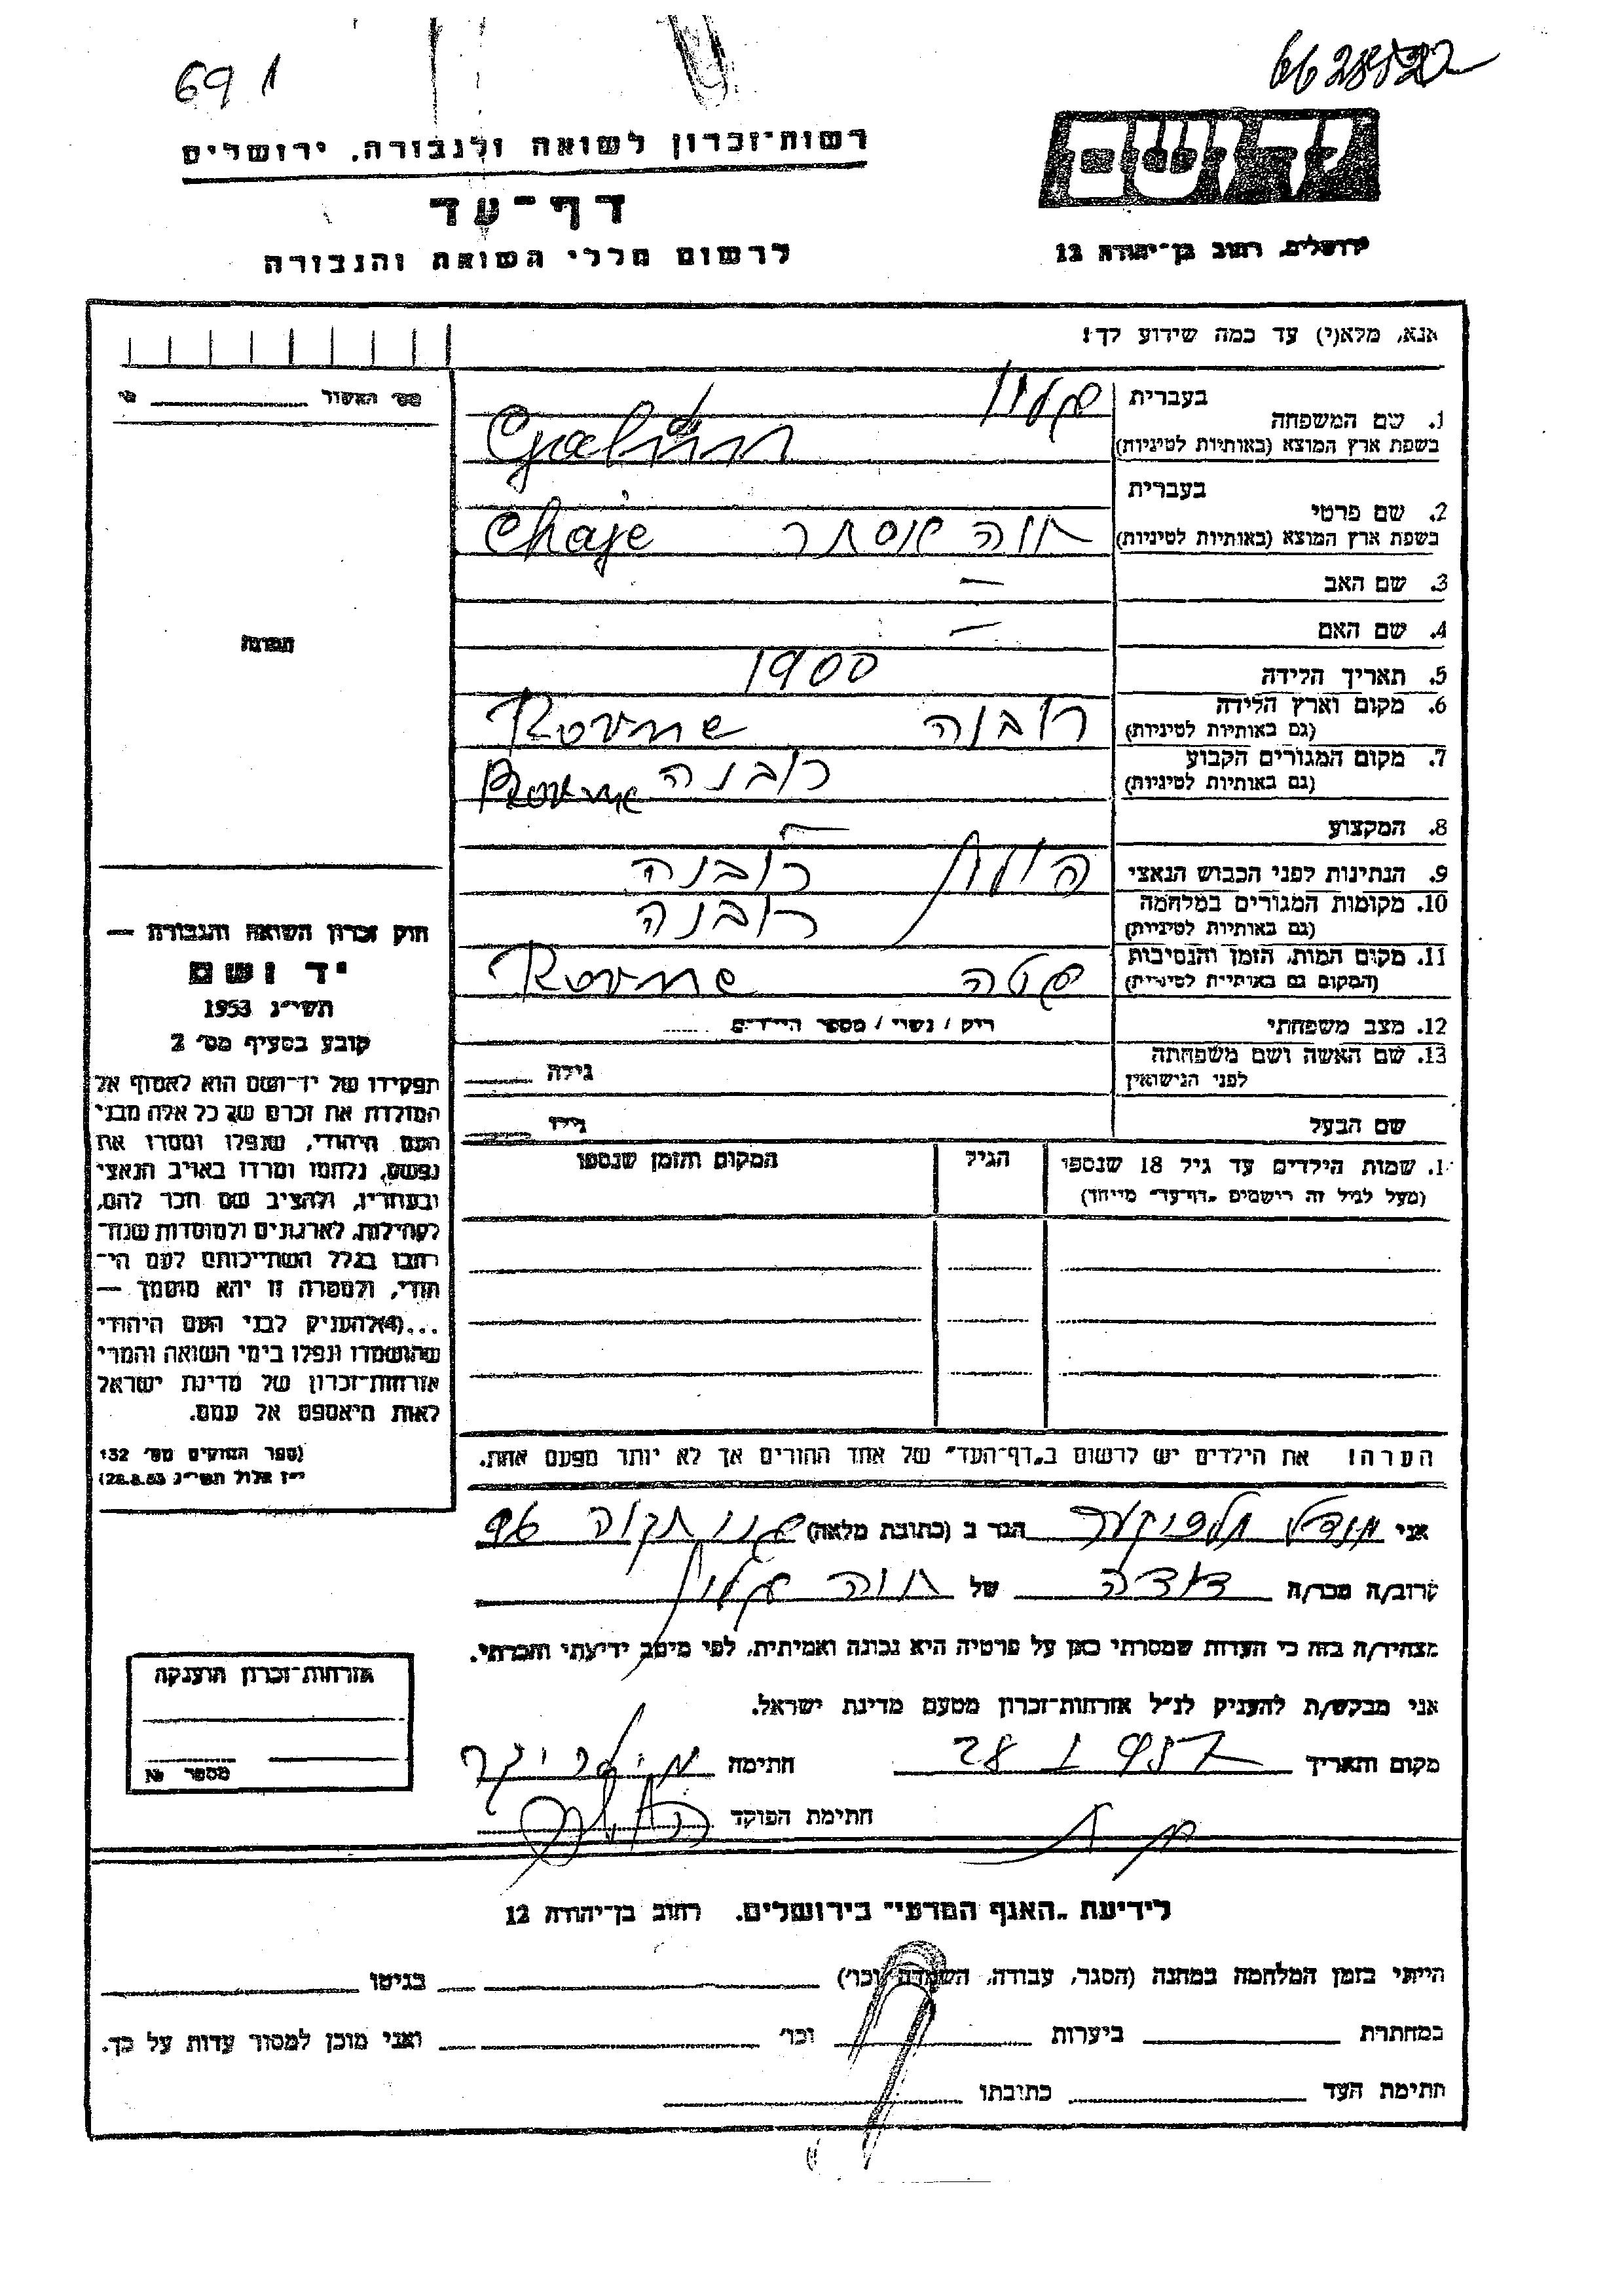 69 1
6628522
רשות־זכרון לשואה ולגבורה, ירושלים
יד ושם
דף־עד
לרשום חללי השואה והגבורה
ירושלים, רחוב בן־יהודה 12
אנא, מלא(י) עד כמה שידוע לך!
מס׳ האשור
1. שם המשפחה
בעברית
בשפת ארץ המוצא (באותיות לטיניות)
2. שם פרטי
בעברית
בשפת ארץ המוצא (באותיות לטיניות) חוה אסתר Chaje
3. שם האב —
4. שם האם —
5. תאריך הלידה 1900
6. מקום וארץ הלידה
(גם באותיות לטיניות) רובנה Rovne
7. מקום המגורים הקבוע
(גם באותיות לטיניות) רובנה Rovne
8. המקצוע —
9. הנתינות לפני הכבוש הנאצי רובנה
10. מקומות המגורים במלחמה
(גם באותיות לטיניות) רובנה
11. מקום המות, הזמן והנסיבות
(המקום גם באותיות לטיניות) Rovne
12. מצב משפחתי רוק / נשוי / מספר הילדים
13. שם האשה ושם משפחתה
לפני הנישואין גילה
שם הבעל גילו
תמונה
חוק זכרון השואה והגבורה —
יד ושם
תשי״ג 1953
קובע בסעיף מס׳ 2
תפקידו של יד־ושם הוא לאסוף אל
המולדת את זכרם של כל אלה מבני
העם היהודי, שנפלו ומסרו את
נפשם, נלחמו ומרדו באויב הנאצי
ובעוזריו, ולהציב שם וזכר להם,
לקהילות, לארגונים ולמוסדות שנח־
רבו בגלל השתייכותם לעם הי־
הודי, ולמטרה זו יהא מוסמך —
...(4) להעניק לבני העם היהודי
שהושמדו ונפלו בימי השואה והמרי
אזרחות־זכרון של מדינת ישראל
לאות היאספם אל עמם.
(ספר החוקים מס׳ 132
י״ז אלול תשי״ג 28.8.53)
שמות הילדים עד גיל 18 שנספו
(מעל לגיל זה רישמים „דף־עד״ מייוחד)
הגיל
המקום והזמן שנספו
הערה! את הילדים יש לרשום ב„דף־העד״ של אחד ההורים אך לא יותר מפעם אחת.
אני הגר ב (כתובת מלאה)
קרוב/ה מכר/ה דודה של חוה
מצהיר/ה בזה כי העדות שמסרתי כאן על פרטיה היא נכונה ואמיתית, לפי מיטב ידיעתי והכרתי.
אני מבקש/ת להעניק לנ״ל אזרחות־זכרון מטעם מדינת ישראל.
מקום ותאריך חתימה
חתימת הפוקד
אזרחות־זכרון הוענקה
מספר №
לידיעת „האגף המדעי״ בירושלים, רחוב בן־יהודה 12
הייתי בזמן המלחמה במחנה (הסגר, עבודה, השמדה וכו׳) בגיטו
במחתרת ביערות וכו׳ ואני מוכן למסור עדות על כך.
חתימת העד כתובתו